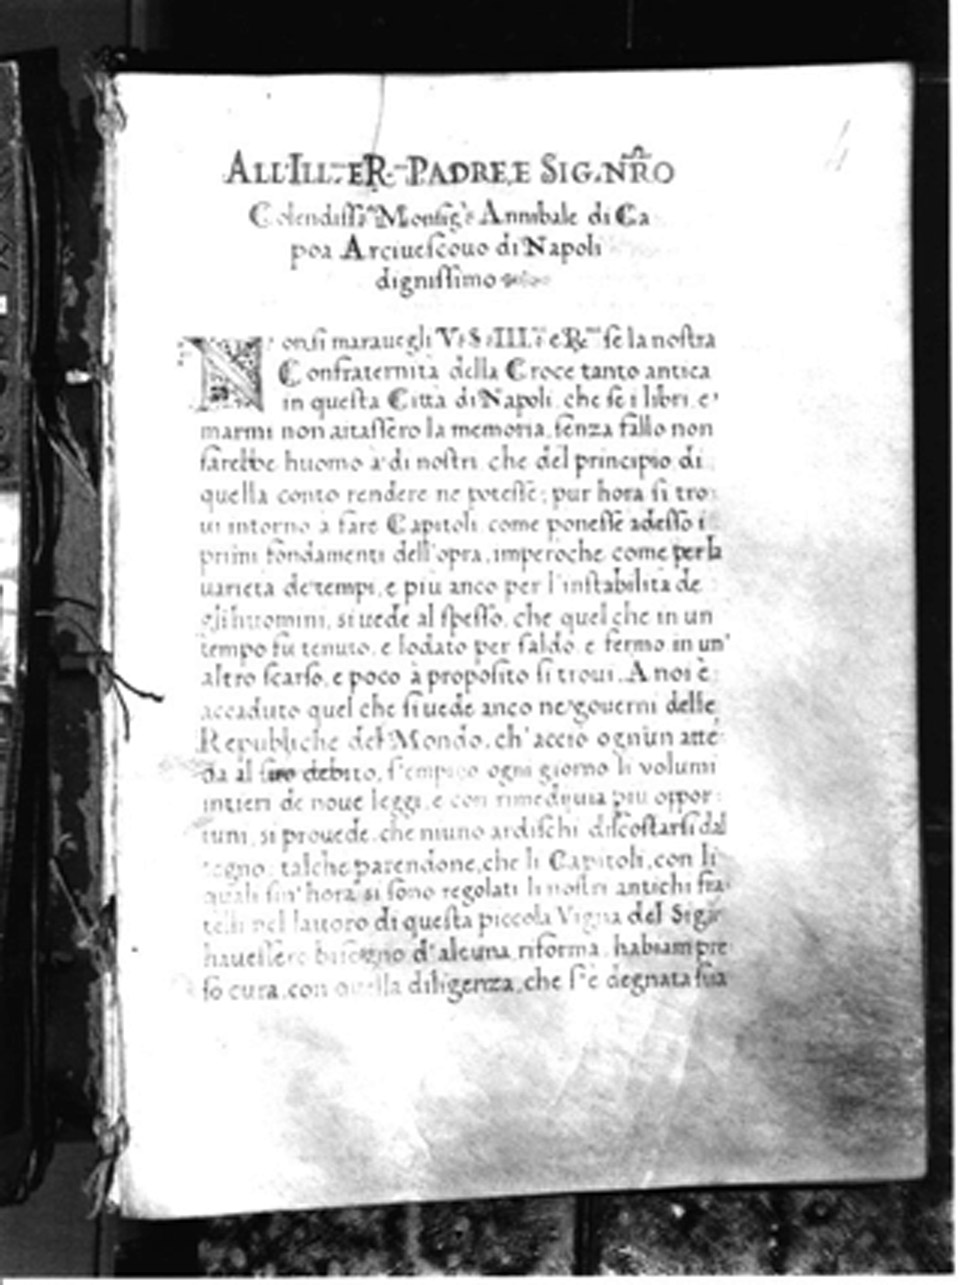 ALL'ILL.^mo E R.^mo PADRE, E SIG. NRO
Colendiss.^mo Monsig.^r Annibale di Ca
poa Arciuescouo di Napoli
dignissimo
Non si marauegli V. S. Ill.^ma e R.^ma se la nostra
Confraternita della Croce tanto antica
in questa Citta di Napoli, che se i libri, e'
marmi non aitassero la memoria, senza fallo non
sarebbe huomo a' di nostri, che del principio di
quella conto rendere ne potesse; pur hora si tro
ui intorno a fare Capitoli, come ponesse adesso i
primi fondamenti dell'opra, imperoche come per la
uarieta de tempi, e piu anco per l'instabilita de
gli huomini, si uede al spesso, che quel che in un
tempo fu tenuto, e lodato per saldo, e fermo, in un'
altro scarso, e poco à proposito si troui. A noi è
accaduto quel che si uede anco ne' gouerni delle
Republiche del Mondo, ch'acciò ogniun atte
da al suo debito, s'empino ogni giorno li volumi
intieri de noue leggi, e con rimedij uia piu oppor
tuni, si prouede, che niuno ardischi discostarsi dal
segno: talche parendone, che li Capitoli, con li
quali sin' hora si sono regolati li nostri antichi fra
telli nel lauoro di questa piccola Vigna del Sig.^r
hauessero bisogno d'alcuna riforma, habiam pre
so cura, con quella diligenza, che s'è degnata sua